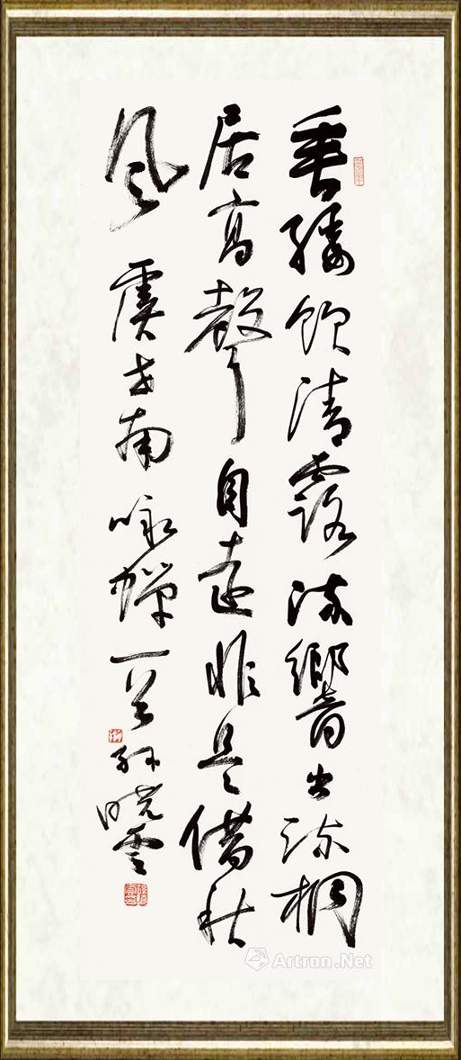 垂緌飲清露流響出疏桐
居高聲自遠非是借秋
風 虞世南咏蟬一首 孫曉雲
Artron.Net